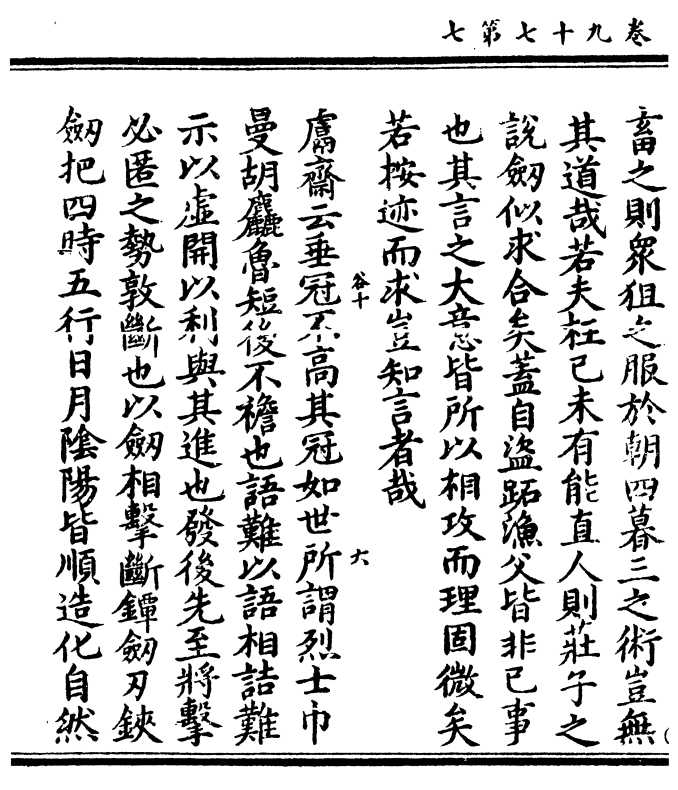 卷九十七第七
畜之則衆狙之服於朝四暮三之術豈無
其道哉若夫枉己未有能直人則莊子之
說劒似求合矣蓋自盜跖漁父皆非己事
也其言之大意皆所以相攻而理固微矣
若按迹而求豈知言者哉
鬳齋云垂冠不高其冠如世所謂烈士巾
谷十
六
曼胡麤魯短後不襜也語難以語相詰難
示以虛開以利與其進也發後先至將擊
必匿之勢敦斷也以劒相擊斷鐔劒刃鋏
劒把四時五行日月陰陽皆順造化自然